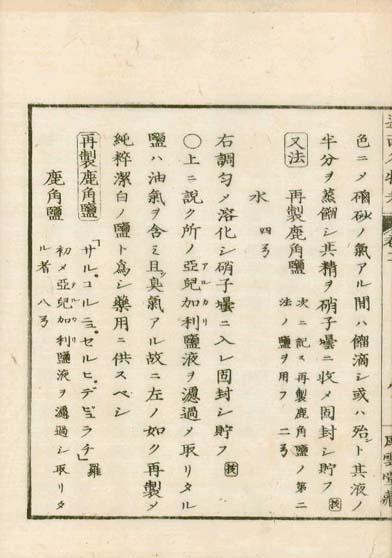 色ニ〆硇砂ノ氣アル間ハ餾滴シ或ハ殆ント其液ノ
半分ヲ蒸餾シ其精ヲ硝子壜ニ收メ固封シ貯フ 扶
又法 再製鹿角鹽 次ニ記ス再製鹿角鹽ノ第二
法ノ鹽ヲ用フ 二ヲ
水 四ヲ
右調勻〆溶化シ硝子壜ニ入レ固封シ貯フ 扶
〇上ニ說ク所ノ亞兒加利鹽液ヲ濾過〆取リタル
アルカリ
鹽ハ油氣ヲ含ミ且臭氣アル故ニ左ノ如ク再製〆
純粹潔白ノ鹽ト爲シ藥用ニ供スベシ
再製鹿角鹽 「サル、コルニュ、セルヒ、デピュラチ」羅
鹿角鹽 初メ亞兒加利鹽液ヲ濾過シ取リタ
アルカリ
ル者 八ヲ
風雲堂藏